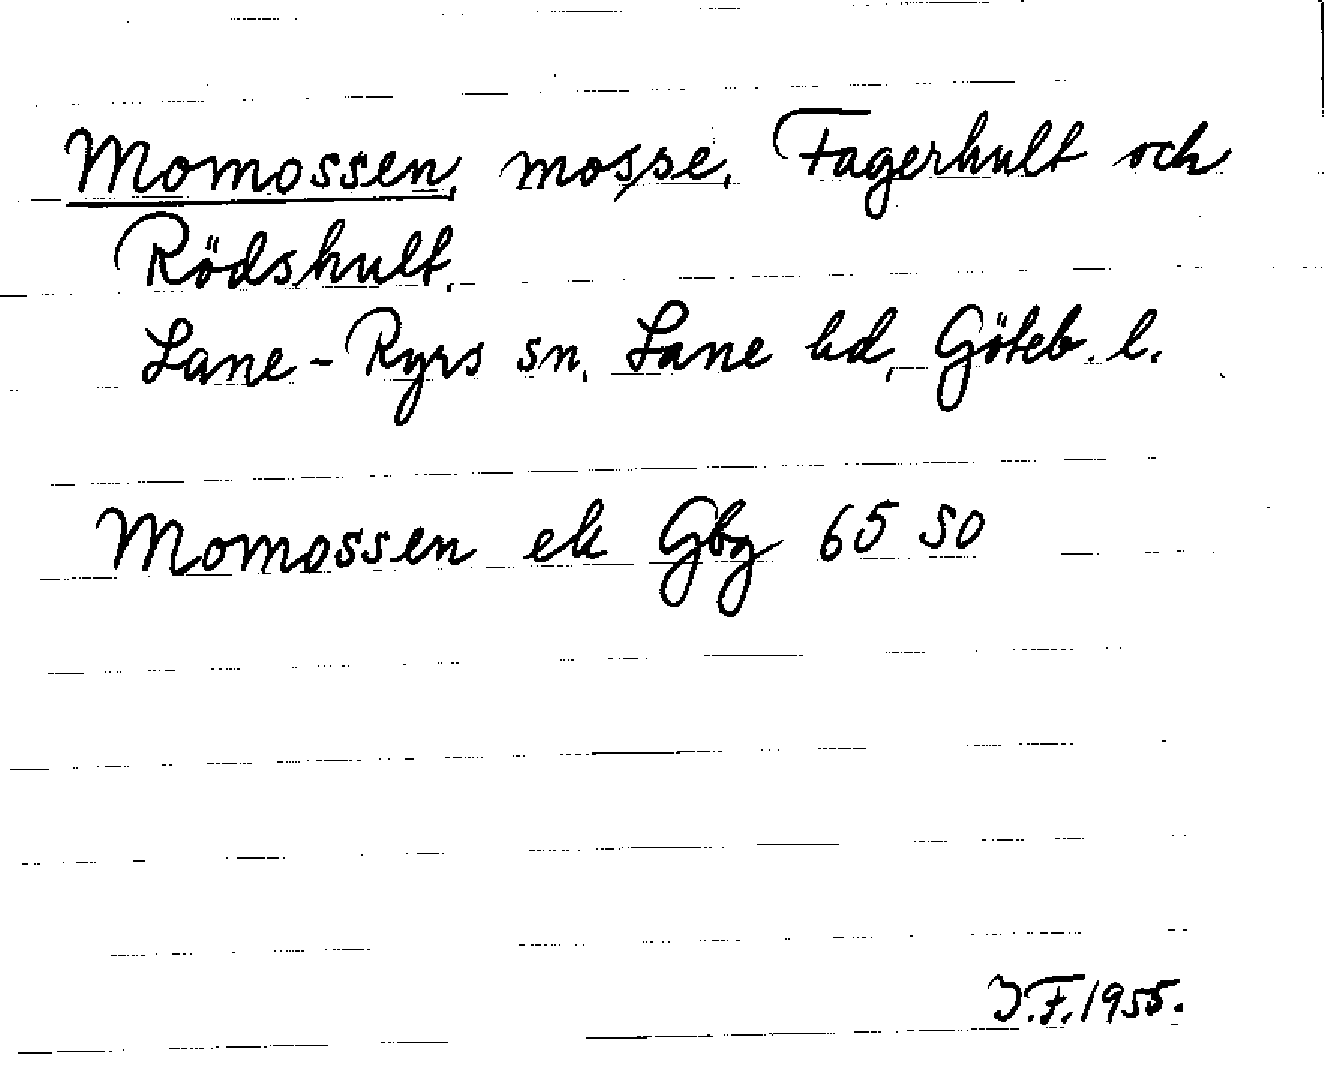 Momossen, mosse, Fagerhult och
Rödshult,
Lane-Ryrs sn, Lane hd, Göteb. l.
Momossen ek Gbg 65 SO
J.F. 1955.